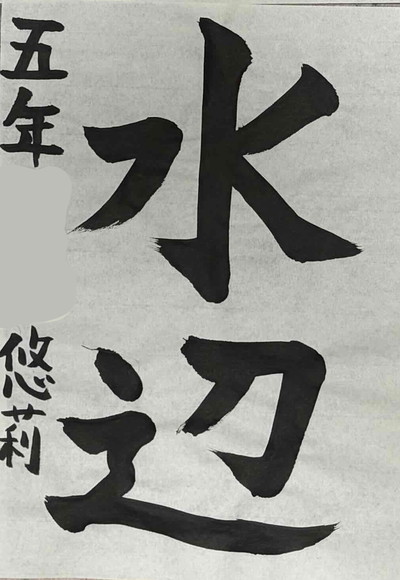 水辺
五年
悠莉